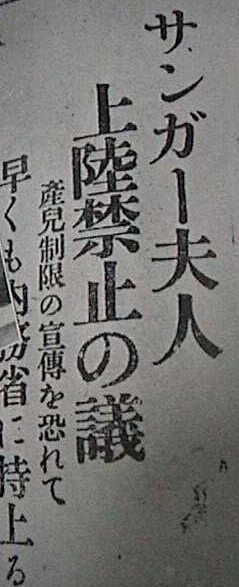 サンガー夫人
上陸禁止の議
產兒制限の宣傳を恐れて
早くも内務省に持上る